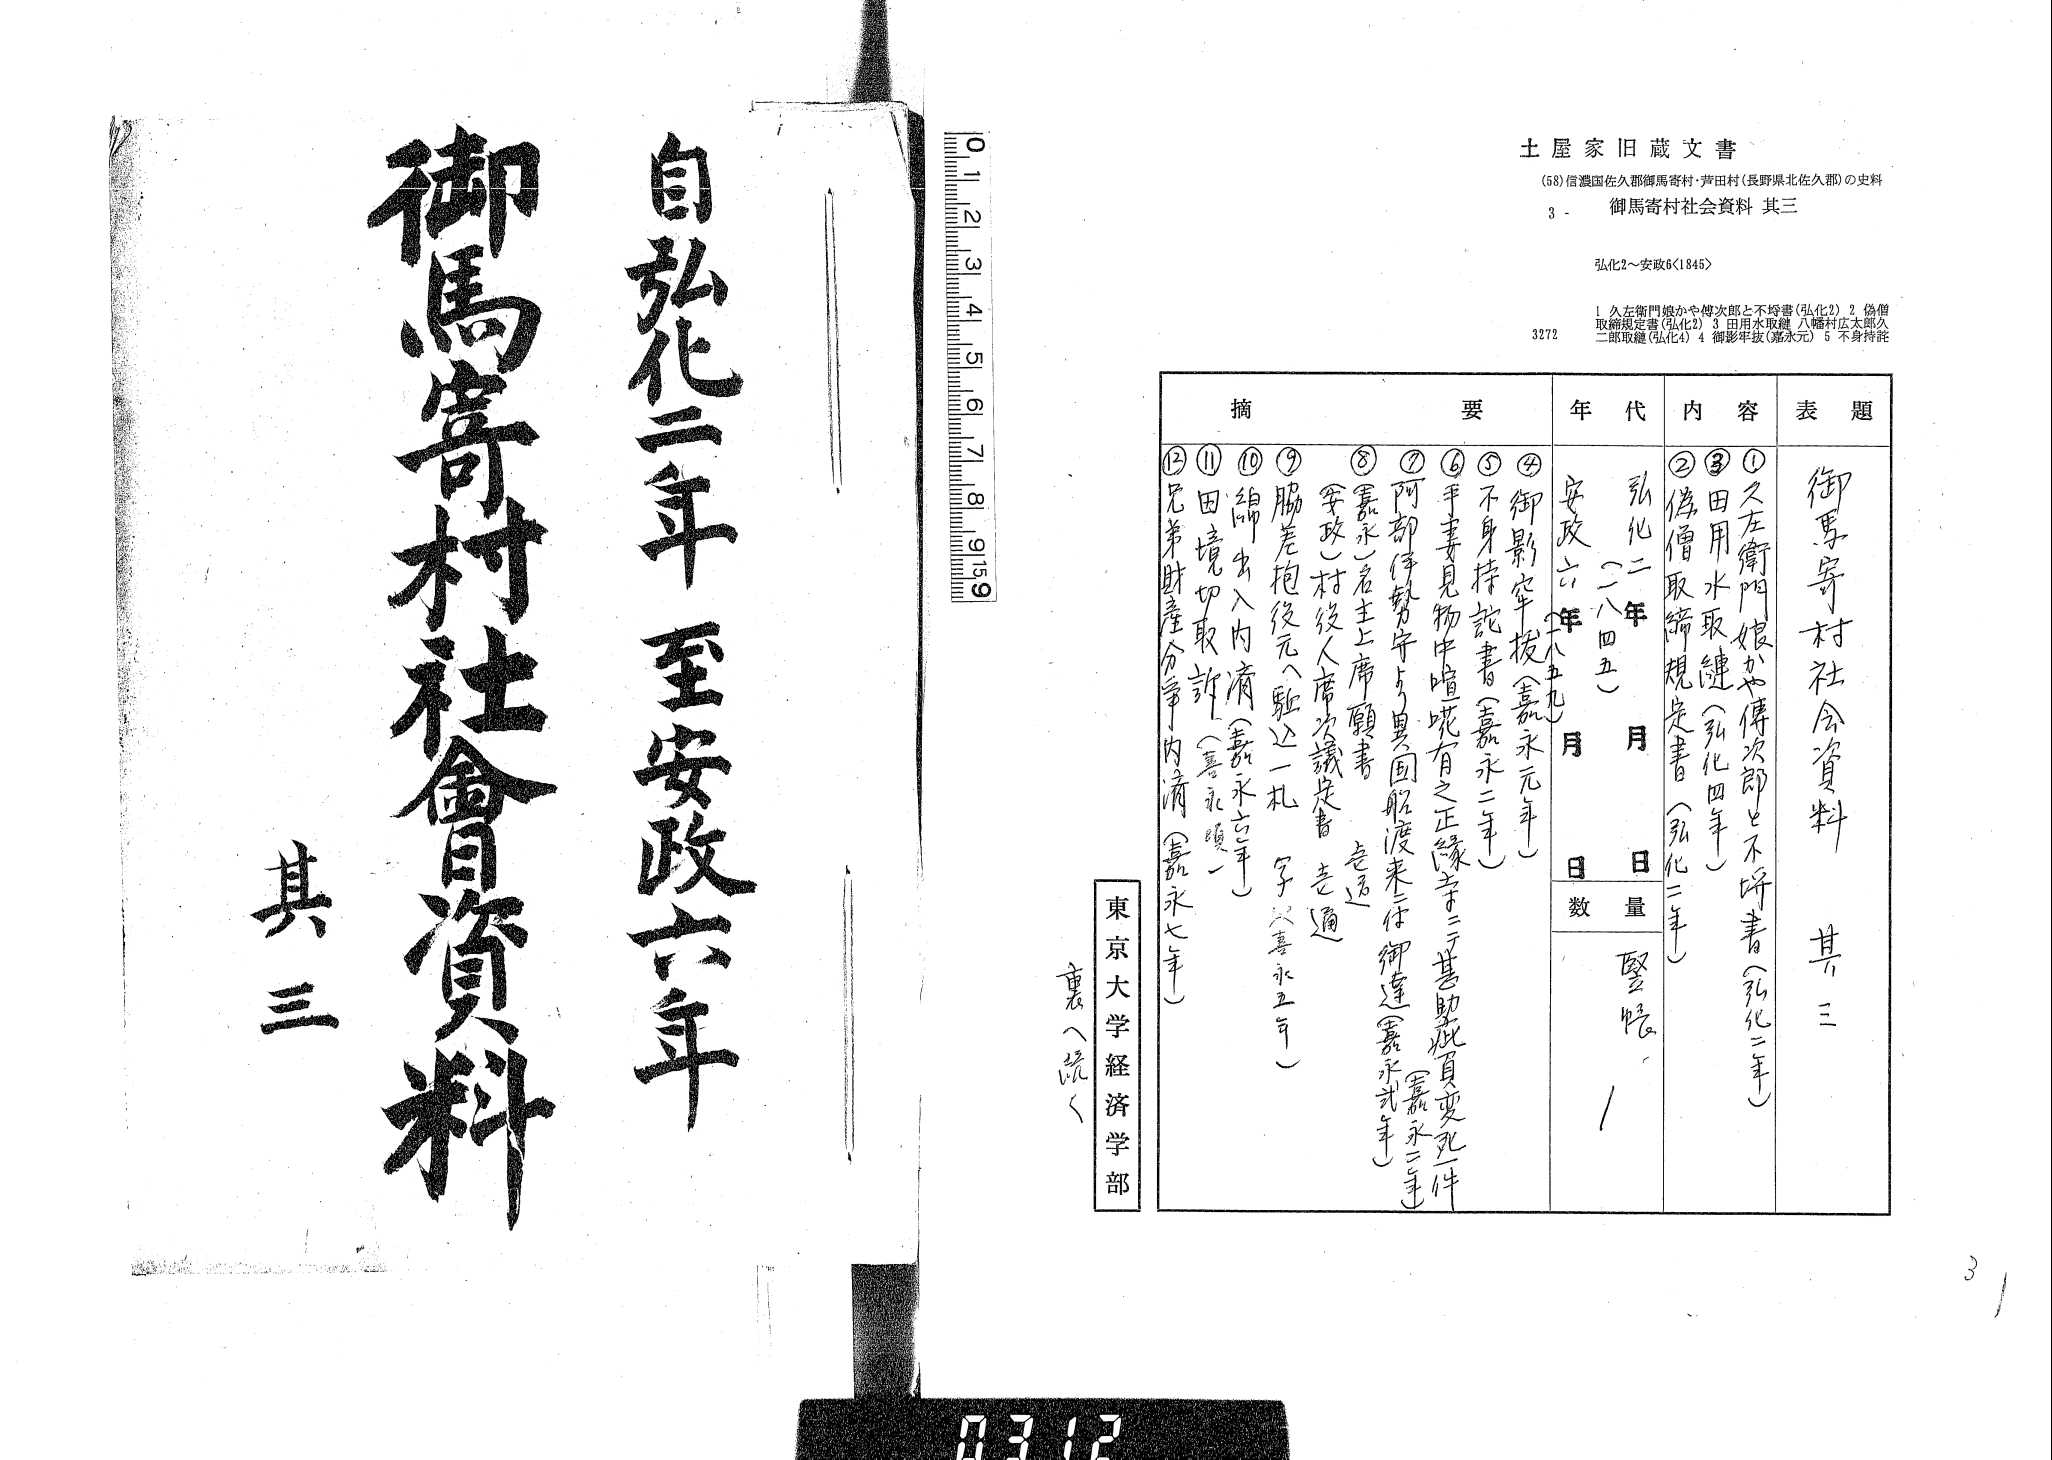 土屋家旧蔵文書
(58)信濃国佐久郡御馬寄村・芦田村(長野県北佐久郡)の史料
3 -　御馬寄村社会資料 其三
弘化2〜安政6<1845>
1 久左衛門娘かや傳次郎と不埒書(弘化2) 2 偽僧
取締規定書(弘化2) 3 田用水取縺 八幡村広太郎久
3272　二郎取縺(弘化4) 4 御影牢抜(嘉永元) 5 不身持詫
表題
御馬寄村社会資料　其三
内容
①久左衛門娘かや傳次郎と不埒書(弘化二年)
③田用水取縺(弘化四年)
②偽僧取締規定書(弘化二年)
年代
弘化二年　月　日
(一八四五)
安政六年　月　日
(一八五九)
数量
竪帳
1
摘要
④御影牢抜(嘉永元年)
⑤不身持詫書(嘉永二年)
⑥手妻見物中喧嘩有之正縁寺ニテ甚助疵負変死一件
(嘉永二年)
⑦阿部伊勢守より異国船渡来ニ付御達(嘉永弐年)
⑧(嘉永)名主上席願書　壱通
(安政)村役人席次議定書　壱通
⑨脇差抱役元へ駈込一札　(嘉永五年)
⑩綿出入内済(嘉永六年)
⑪田境切取訴(嘉永頃)
⑫兄弟財産分争内済(嘉永七年)
東京大学経済学部
裏へ続く
3
1
0 1 2 3 4 5 6 7 8 9 15.9
自弘化二年 至安政六年
御馬寄村社會資料
其三
0312